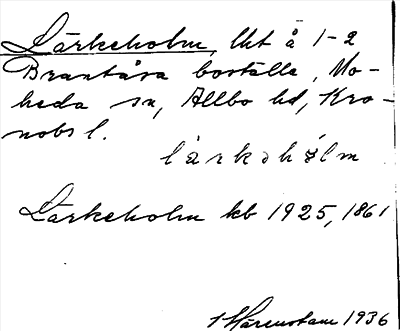 Lärkeholm, lht å 1-2
Brantåsa boställe, Mo-
heda sn, Allbo hd, Kro-
nobs l.
lärkəhòlm
Lärkeholm kb 1925, 1861
1936